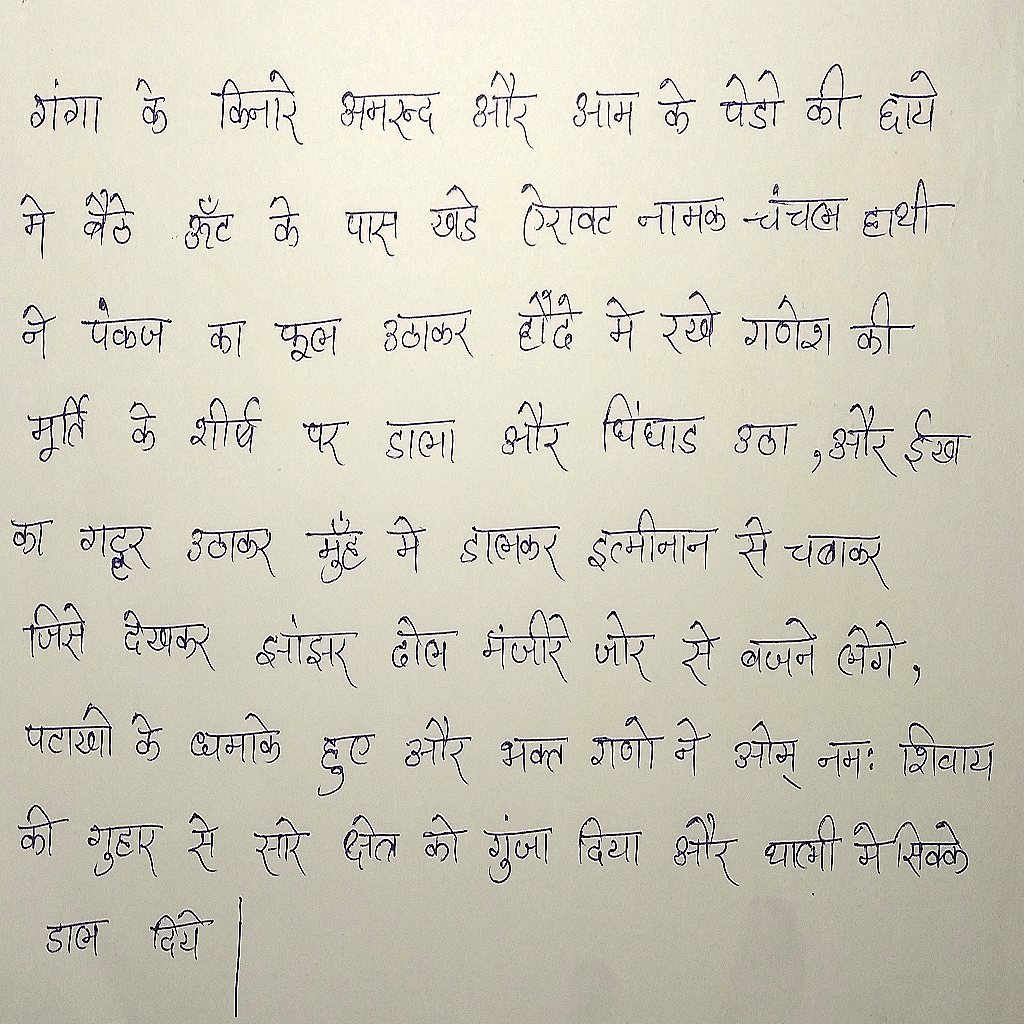 गंगा के किनारे अमरुन्द और आम के पेडो की छाये
मे बैठे ऊँट के पास खडे ऐरावट नामक चंचल हाथी
ने पंकज का फूल उठाकर हौदे मे रखे गणेश की
मूर्ति के शीर्ष पर डाला और चिंघाड उठा , और ईख
का गट्ठर उठाकर मुँह मे डालकर इत्मीनान से चबाकर
जिसे देखकर झांझर ढोल मंजीरे जोर से बजने लेगे ,
पटाखो के धमाके हुए और भक्त गणो ने ओम् नमः शिवाय
की गुहार से सारे क्षेत्र को गुंजा दिया और थाली मे सिक्के
डाल दिये |